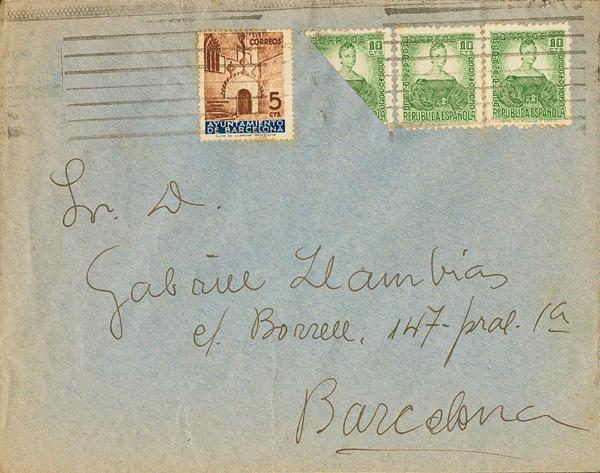 CORREOS
5
CTS.
AYUNTAMIENTO
DE BARCELONA
CORREOS 10 CTS
REPUBLICA ESPAÑOLA
CORREOS 10 CTS
REPUBLICA ESPAÑOLA
Sr. D.
Gabriel Llambias
c/. Borrell, 147-pral. 1ª
Barcelona